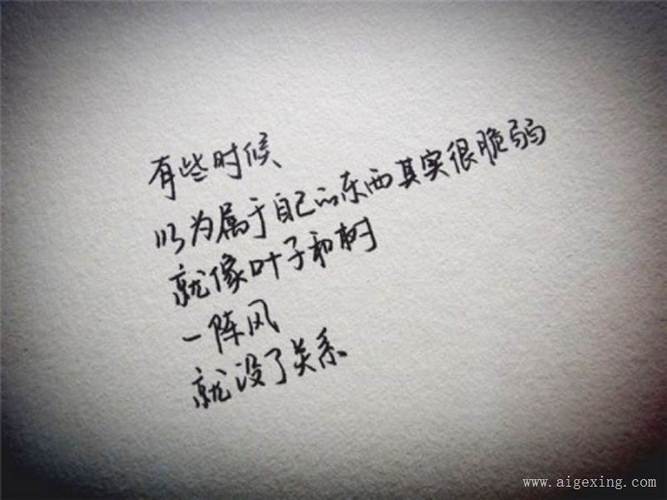 有些时候
以为属于自己的东西其实很脆弱
就像叶子和树
一阵风
就没了关系
www.aigexing.com